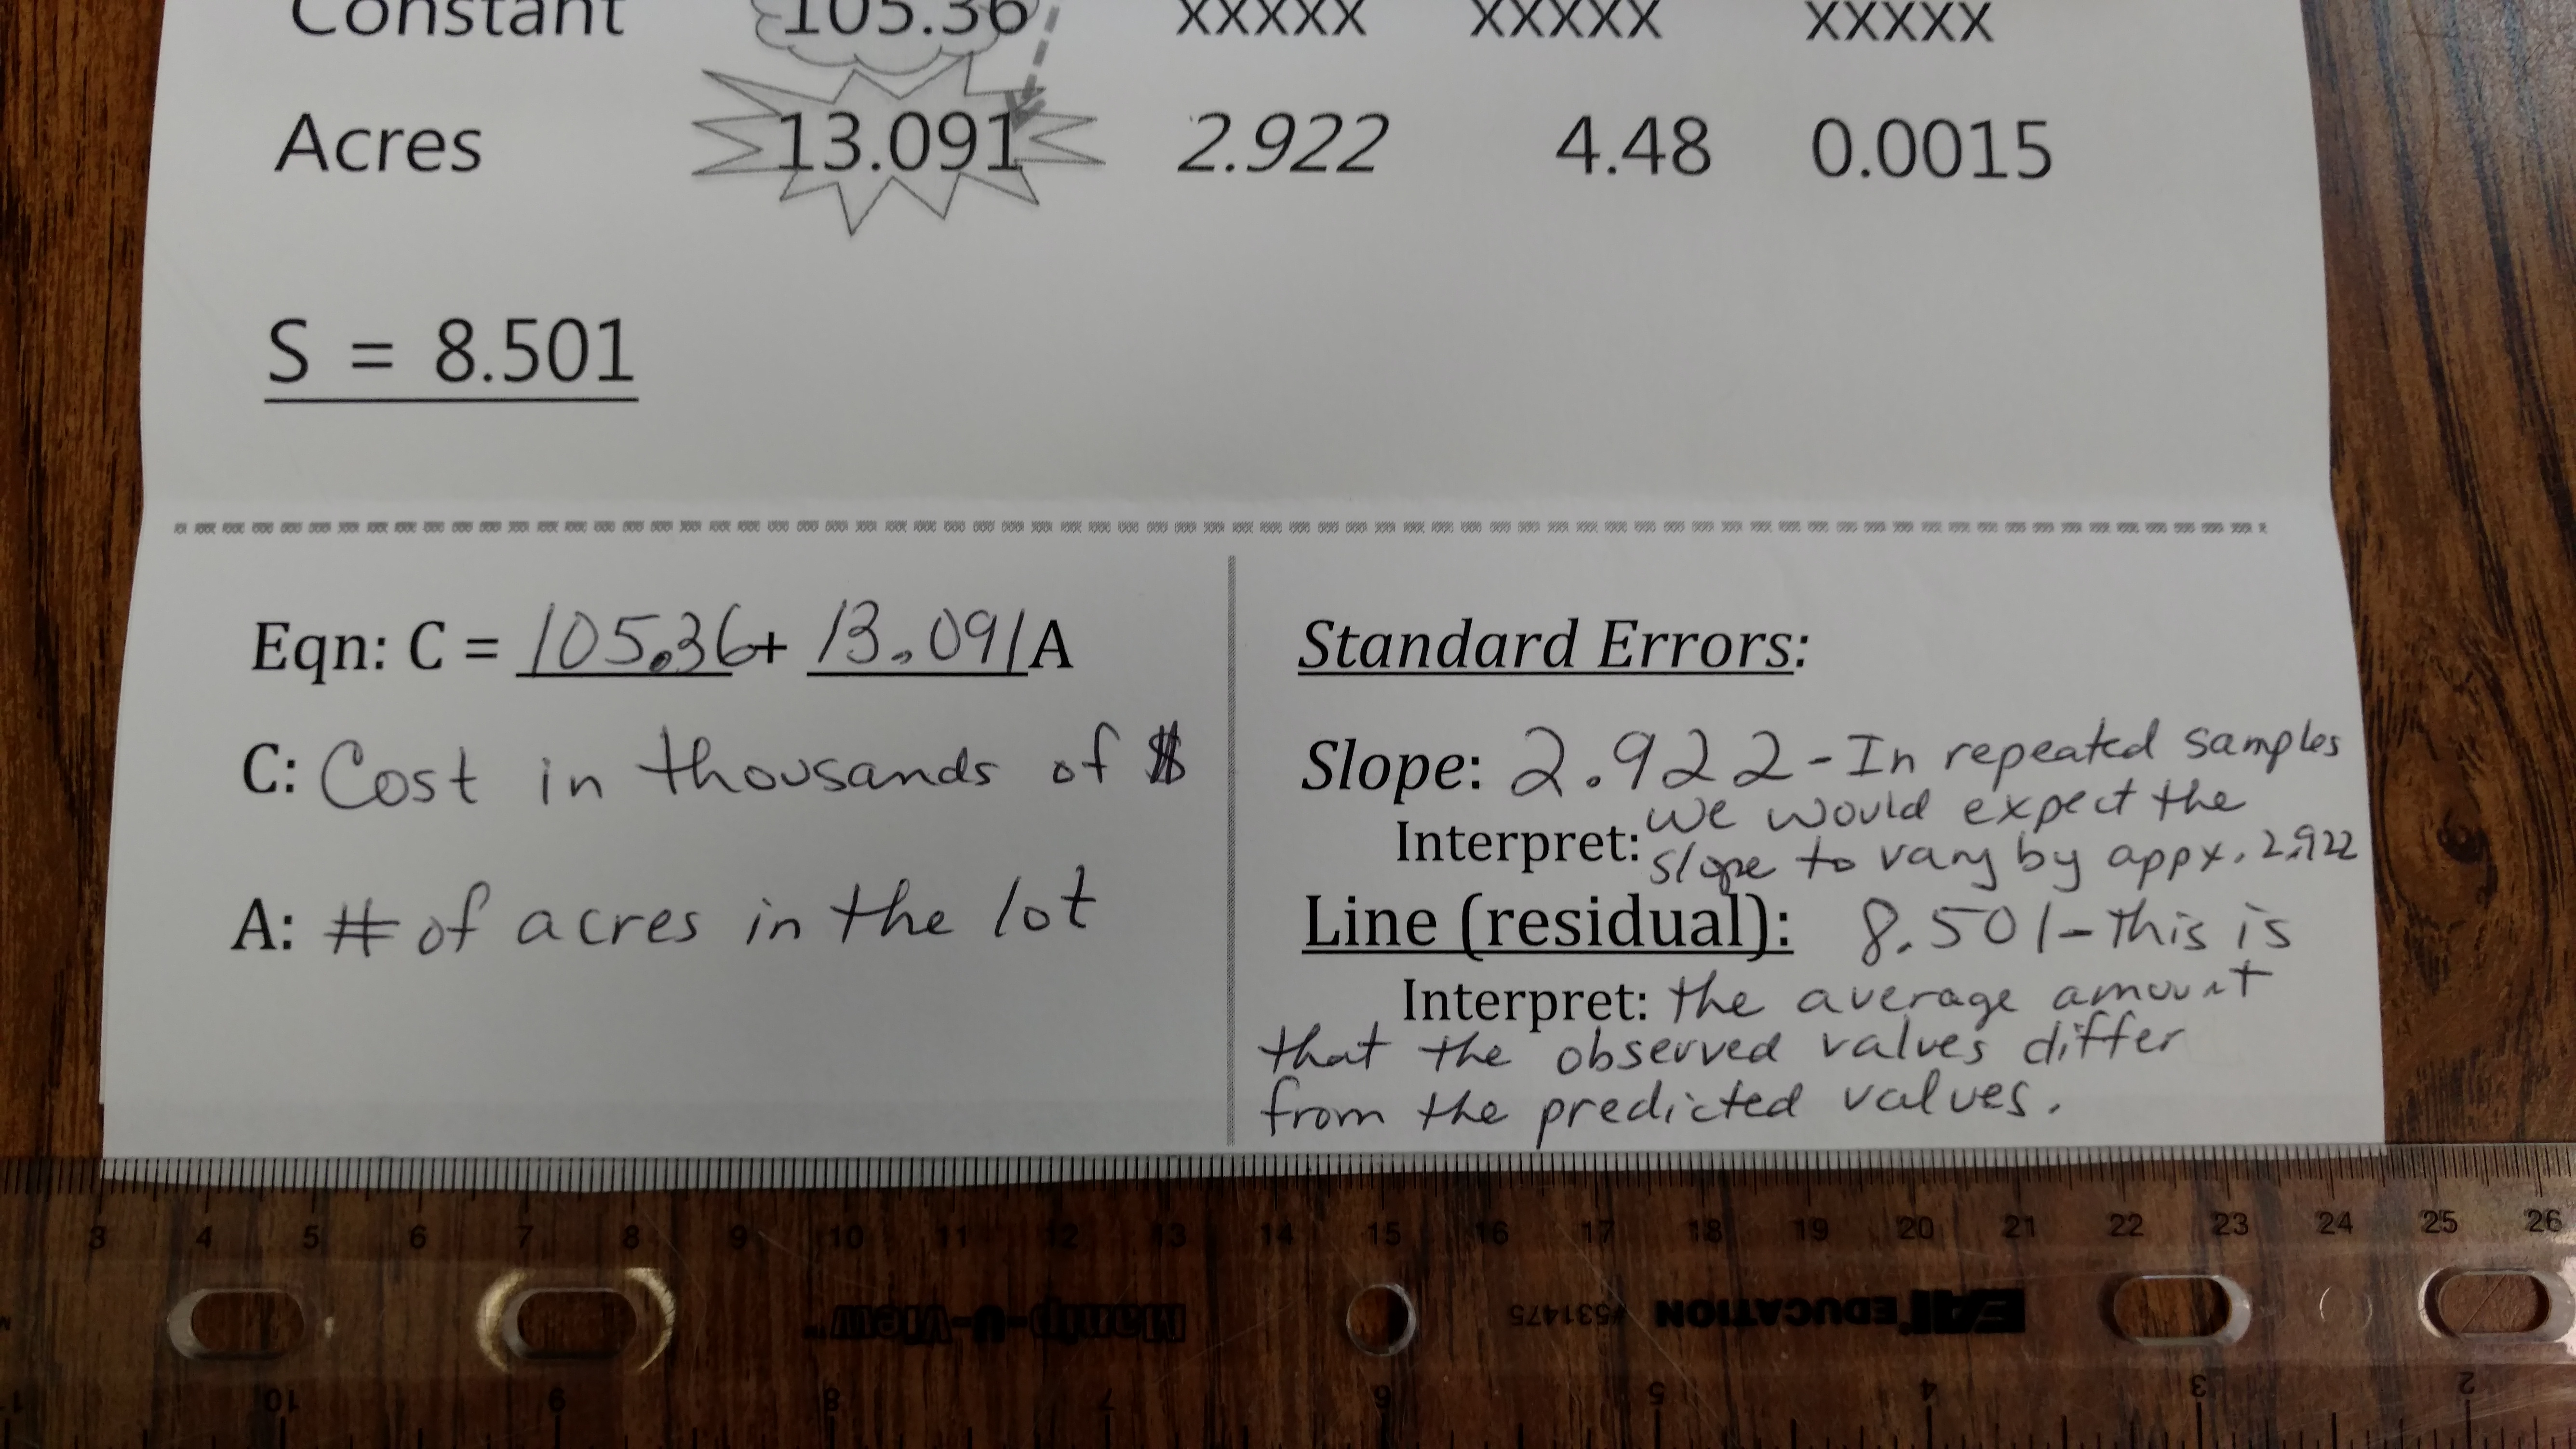 Constant 105.36 xxxxx xxxxx xxxxx
Acres 13.091 2.922 4.48 0.0015
S = 8.501
Eqn: C = 105.36 + 13.091 A
C: Cost in thousands of $
A: # of acres in the lot
Standard Errors:
Slope: 2.922 - In repeated samples
Interpret: we would expect the
slope to vary by appx. 2.922
Line (residual): 8.501 - this is
Interpret: the average amount
that the observed values differ
from the predicted values.
3 4 5 6 7 8 9 10 11 12 13 14 15 16 17 18 19 20 21 22 23 24 25 26
Manip-U-View™ #531475 EAI EDUCATION
10 9 8 7 6 5 4 3 2